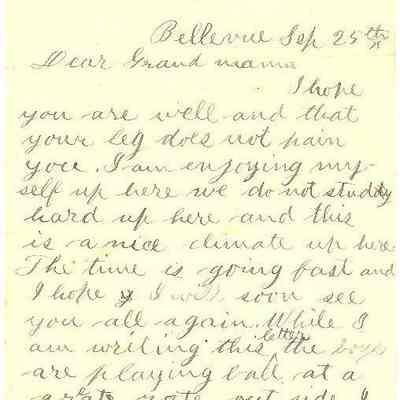 Bellevue Sep 25th
Dear Grand mama
I hope
you are well and that
your leg does not pain
you. I am enjoying my-
self up here we do not studdy
hard up here and this
is a nice climate up here
The time is going fast and
I hope y I will soon see
you all again. While I
am writing this letter the boys
are playing ball at a
great rate out side I